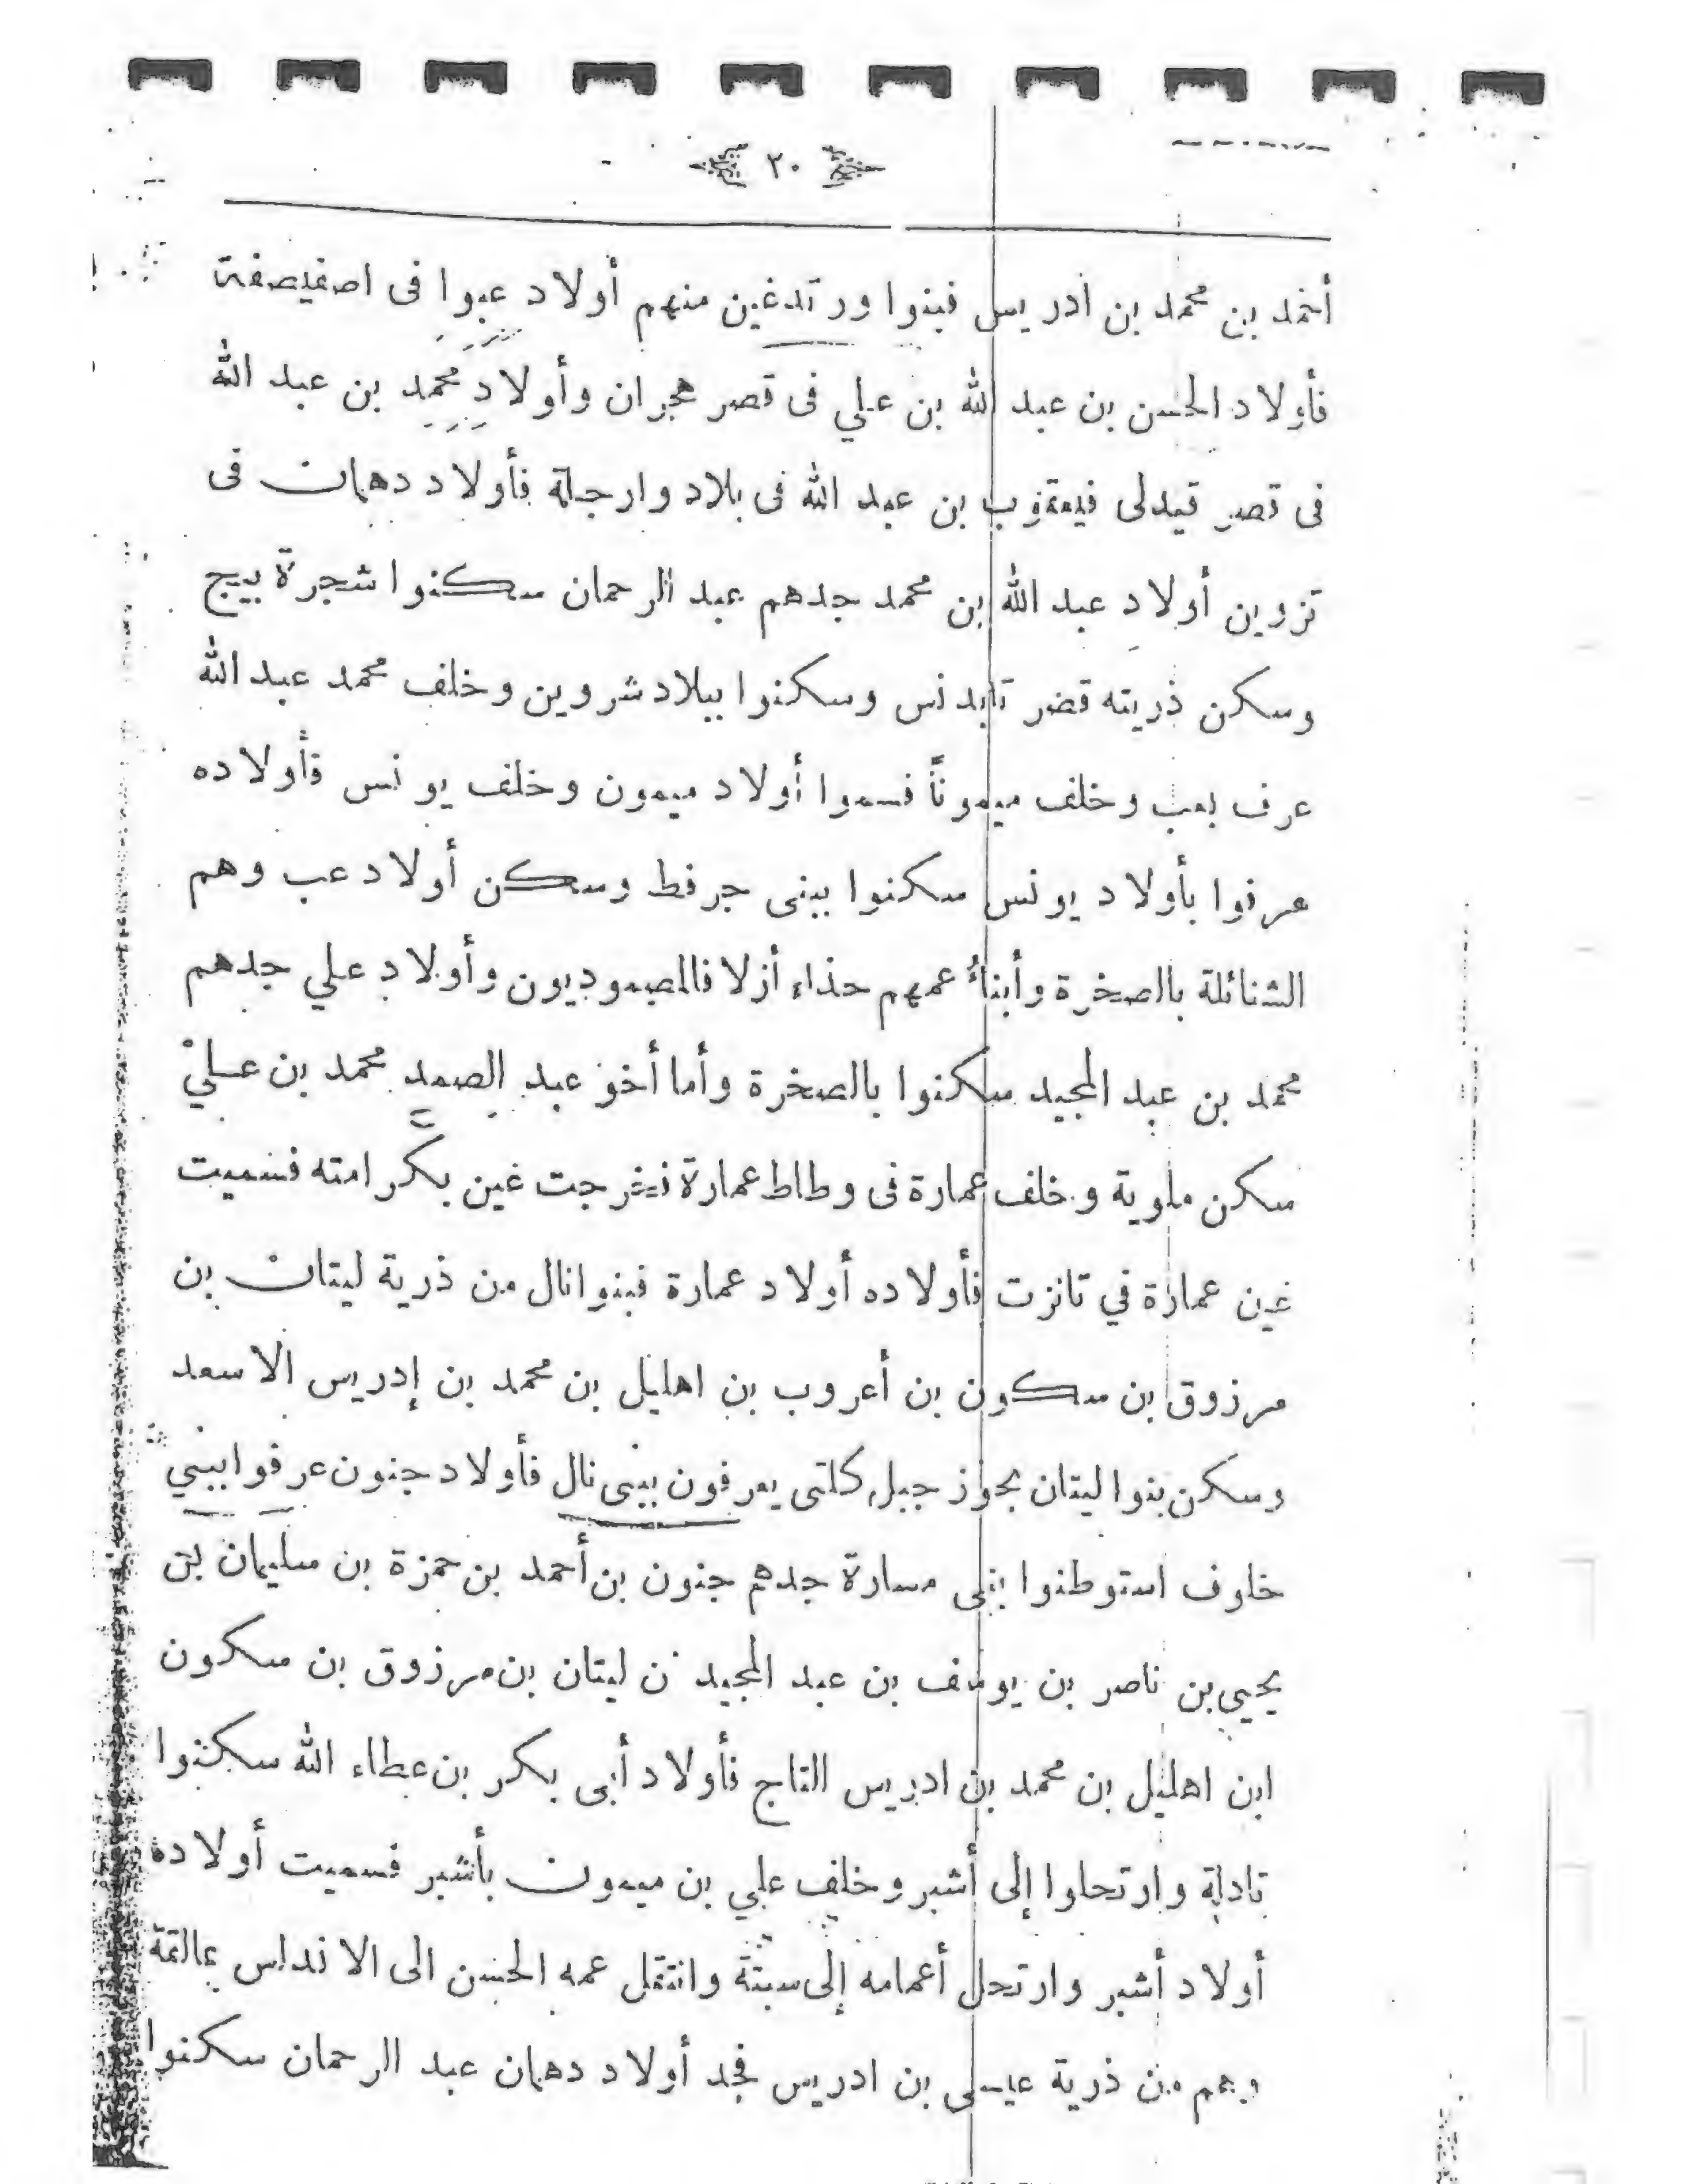 ٢٠
أحمد بن محمد بن ادريس فبنوا ورتدغين منهم أولاد عبوا فى اصفيصفة
فأولاد الحسن بن عبد الله بن علي فى قصر هجران وأولاد محمد بن عبد الله
فى قصر قيدلى فيعقوب بن عبد الله فى بلاد وارجلة فأولاد دهمان فى
تزوين أولاد عبد الله بن محمد جدهم عبد الرحمان سكنوا شجرة بيج
وسكن ذريته قصر تابدنس وسكنوا ببلاد شروين وخلف محمد عبد الله
عرف بعب وخلف ميموناً فسموا أولاد ميمون وخلف يونس فأولاده
عرفوا بأولاد يونس سكنوا ببنى جرفط وسكن أولاد عب وهم
الشنائلة بالصخرة وأبناءُ عمهم حذاء أزلا فالصموديون وأولاد علي جدهم
محمد بن عبد المجيد سكنوا بالصخرة وأما أخو عبد الصمد محمد بن علي
سكن ملوية وخلف عمارة فى وطاط عمارة فخرجت غين بكرامته فسميت
غين عمارة في تانزت فأولاده أولاد عمارة فبنوا نال من ذرية ليتان بن
مرزوق بن سكون بن أعروب بن اهليل بن محمد بن إدريس الاسعد
وسكن بنوا ليتان بجوز جبل كلتى يعرفون ببنى نال فأولاد جنون عرفوا ببني
خلوف استوطنوا بنى مسارة جدهم جنون بن أحمد بن حمزة بن سليمان بن
يحيى بن ناصر بن يوسف بن عبد المجيد ن ليتان بن مرزوق بن سكون
ابن اهليل بن محمد بن ادريس التاج فأولاد أبى بكر بن عطاء الله سكنوا
تادلة وارتحلوا إلى أشبر وخلف علي بن ميمون بأشبر فسميت أولاده
أولاد أشبر وارتحل أعمامه إلى سبتة وانتقل عمه الحسن الى الاندلس عالقة
وهم من ذرية عيسى بن ادريس فجد أولاد دهمان عبد الرحمان سكنوا